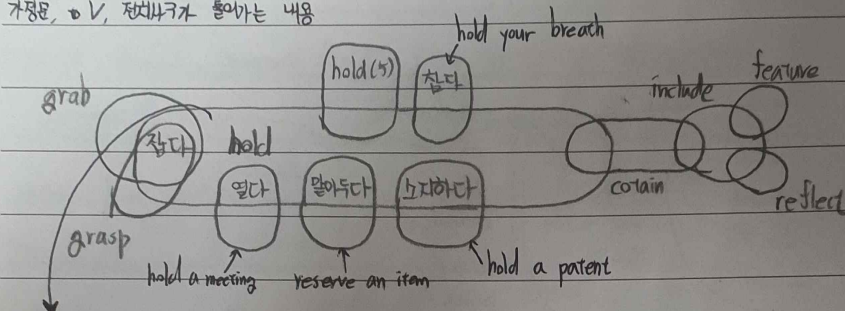 가정문, to V, 전치사구가 들어가는 내용
hold your breath
hold(5)
참다
feature
include
grab
잡다
hold
열다
맡아두다
소지하다
cotain
reflect
grasp
hold a meeting
reserve an item
hold a patent